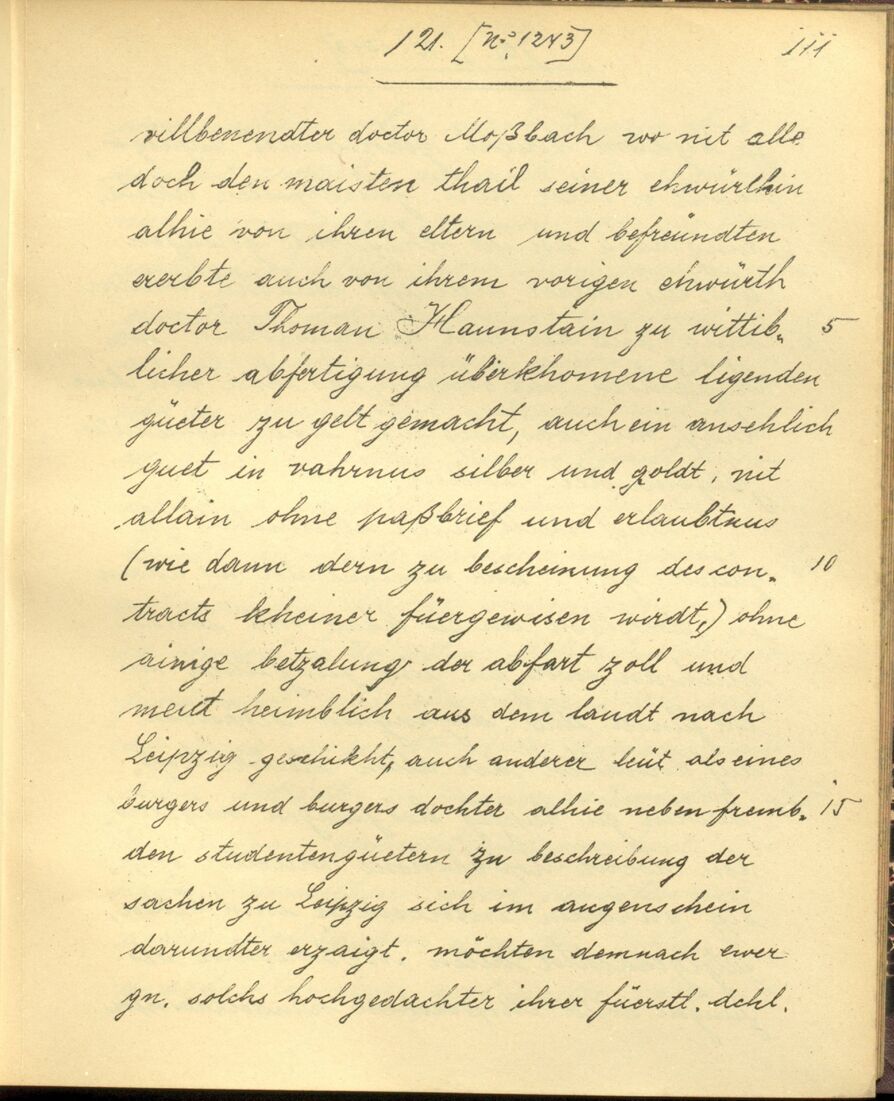 121. [No. 1243] iii
villbenendter doctor Moßbach wo nit alle
doch den maisten thail seiner ehwürthin
alhie von ihren eltern und befreündten
ererbte auch von ihrem vorigen ehwürth
doctor Thoman Haunstain zu wittib„ 5
licher abfertigung überkhomene ligenden
güeter zu gelt gemacht, auch ein ansehlich
guet in vahrnus silber und goldt, nit
allain ohne paßbrief und erlaubtnus
(wie dann dern zu bescheinung des con„ 10
tracts kheiner füergewisen wirdt,) ohne
ainige betzalung der abfart zoll und
meut heimblich aus dem landt nach
Leipzig geschikht, auch anderer leüt als eines
burgers und burgers dochter alhie neben fremb„ 15
den studentengüetern zu beschreibung der
sachen zu Leipzig sich im augenschein
darundter erzaigt. möchten demnach ewer
gn. solchs hochgedachter ihrer füerstl. dchl.